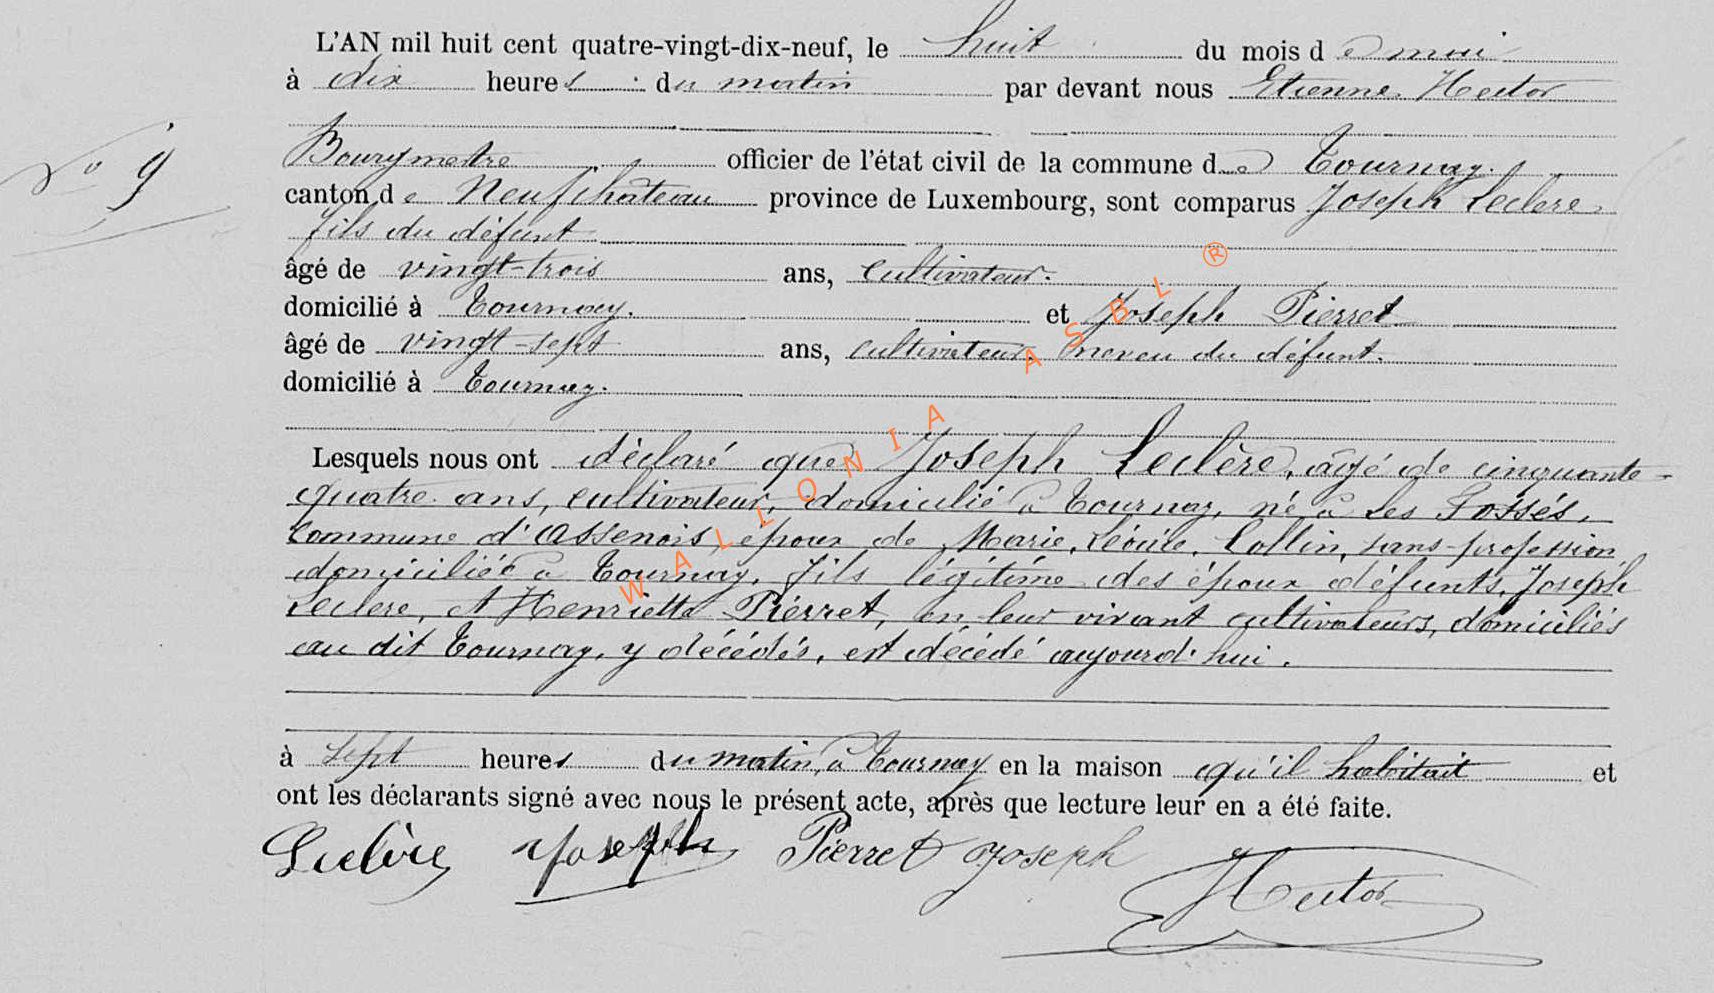 L'AN mil huit cent quatre-vingt-dix-neuf, le huit du mois de mai
à dix heures du matin par devant nous Etienne Hector
Bourgmestre officier de l'état civil de la commune de Tournay.
N° 9
canton de Neufchâteau province de Luxembourg, sont comparus Joseph Leclere
fils du défunt
âgé de vingt-trois ans, cultivateur.
domicilié à Tournay. et Joseph Pierret
âgé de vingt-sept ans, cultivateur. neveu du défunt.
domicilié à Tournay.
Lesquels nous ont déclaré que Joseph Leclère, âgé de cinquante-
quatre ans, cultivateur, domicilié à Tournay, né à Les Fossés,
commune d'Assenois, époux de Marie, Léonie, Collin, sans profession
domiciliée à Tournay, fils légitime des époux défunts, Joseph
Leclere, et Henriette Pierret, en leur vivant cultivateurs, domiciliés
au dit Tournay, y décédés, est décédé aujourd'hui.
à sept heures du matin, à Tournay en la maison qu'il habitait et
ont les déclarants signé avec nous le présent acte, après que lecture leur en a été faite.
Leclère Joseph Pierret Joseph
Hector
WALLONIA ASBL ®